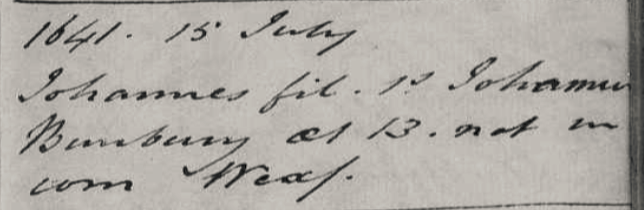 1641. 15 July
Johannes fil. 1s Johannis
Bunbury æt 13. nat in
com Wexf.